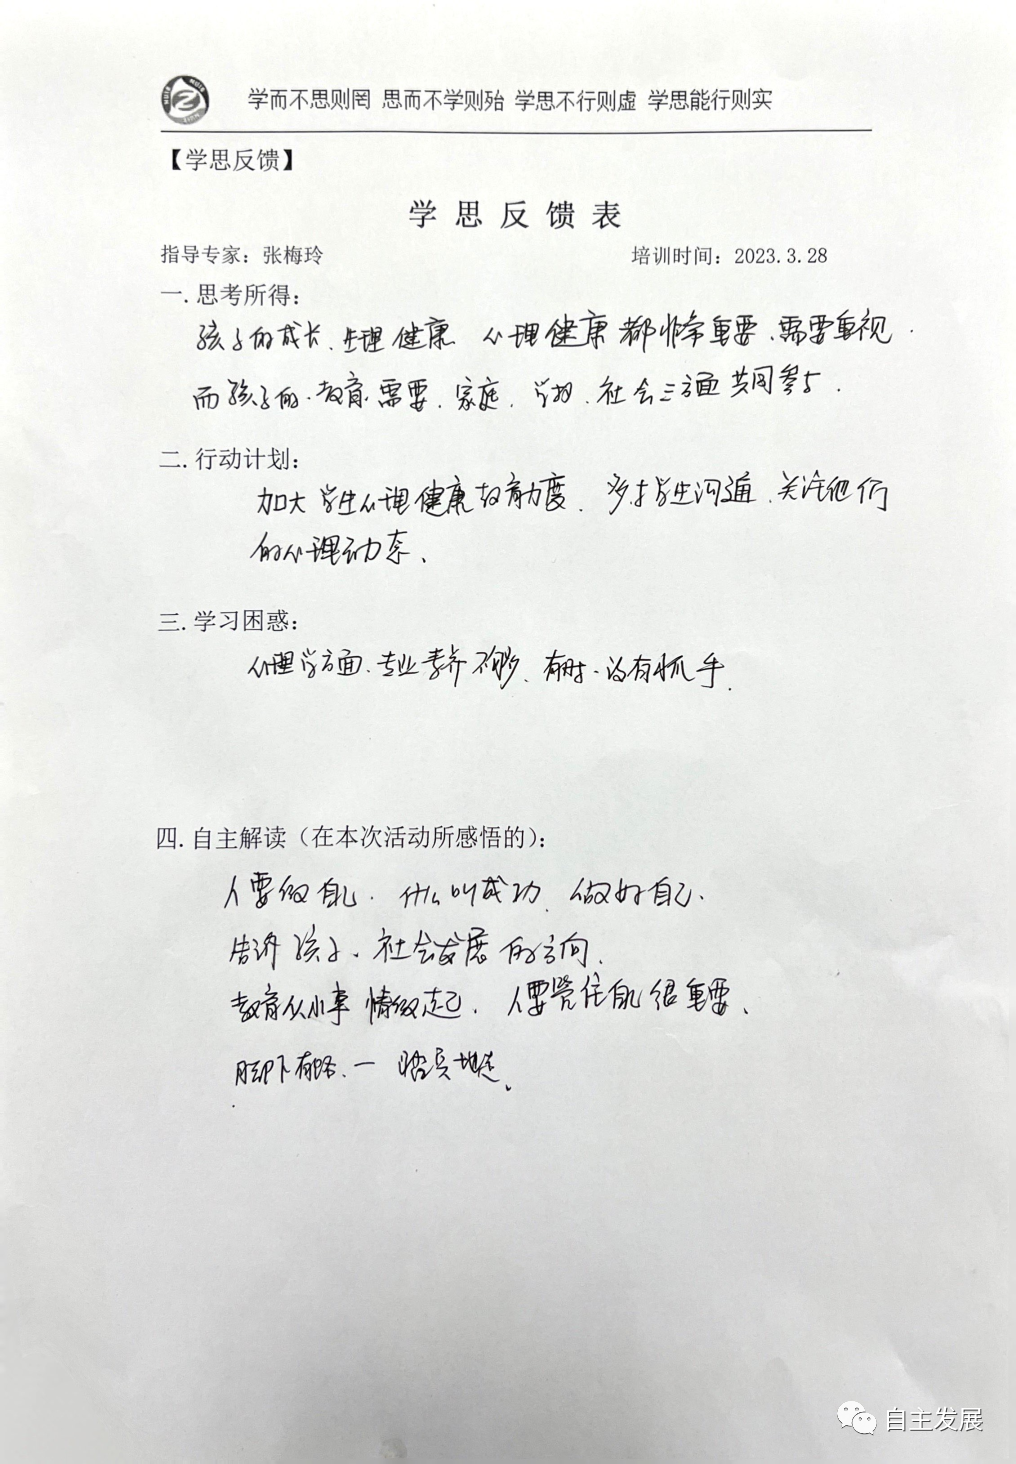 学而不思则罔 思而不学则殆 学思不行则虚 学思能行则实
【学思反馈】
学思反馈表
指导专家：张梅玲 培训时间：2023.3.28
一.思考所得：
孩子的成长、生理健康 心理健康都非常重要、需要重视.
而孩子的.教育.需要.家庭.学校.社会三方面共同参与.
二.行动计划：
加大学生心理健康教育力度、多与学生沟通、关注他们
的心理动态、
三.学习困惑：
心理学方面.专业素养不够、有时.没有抓手.
四.自主解读（在本次活动所感悟的）：
人要做自己.什么叫成功、做好自己.
告诉孩子、社会发展的方向.
教育从小事情做起.人要管住自己很重要、
脚下有路.一踏实地走。
自主发展